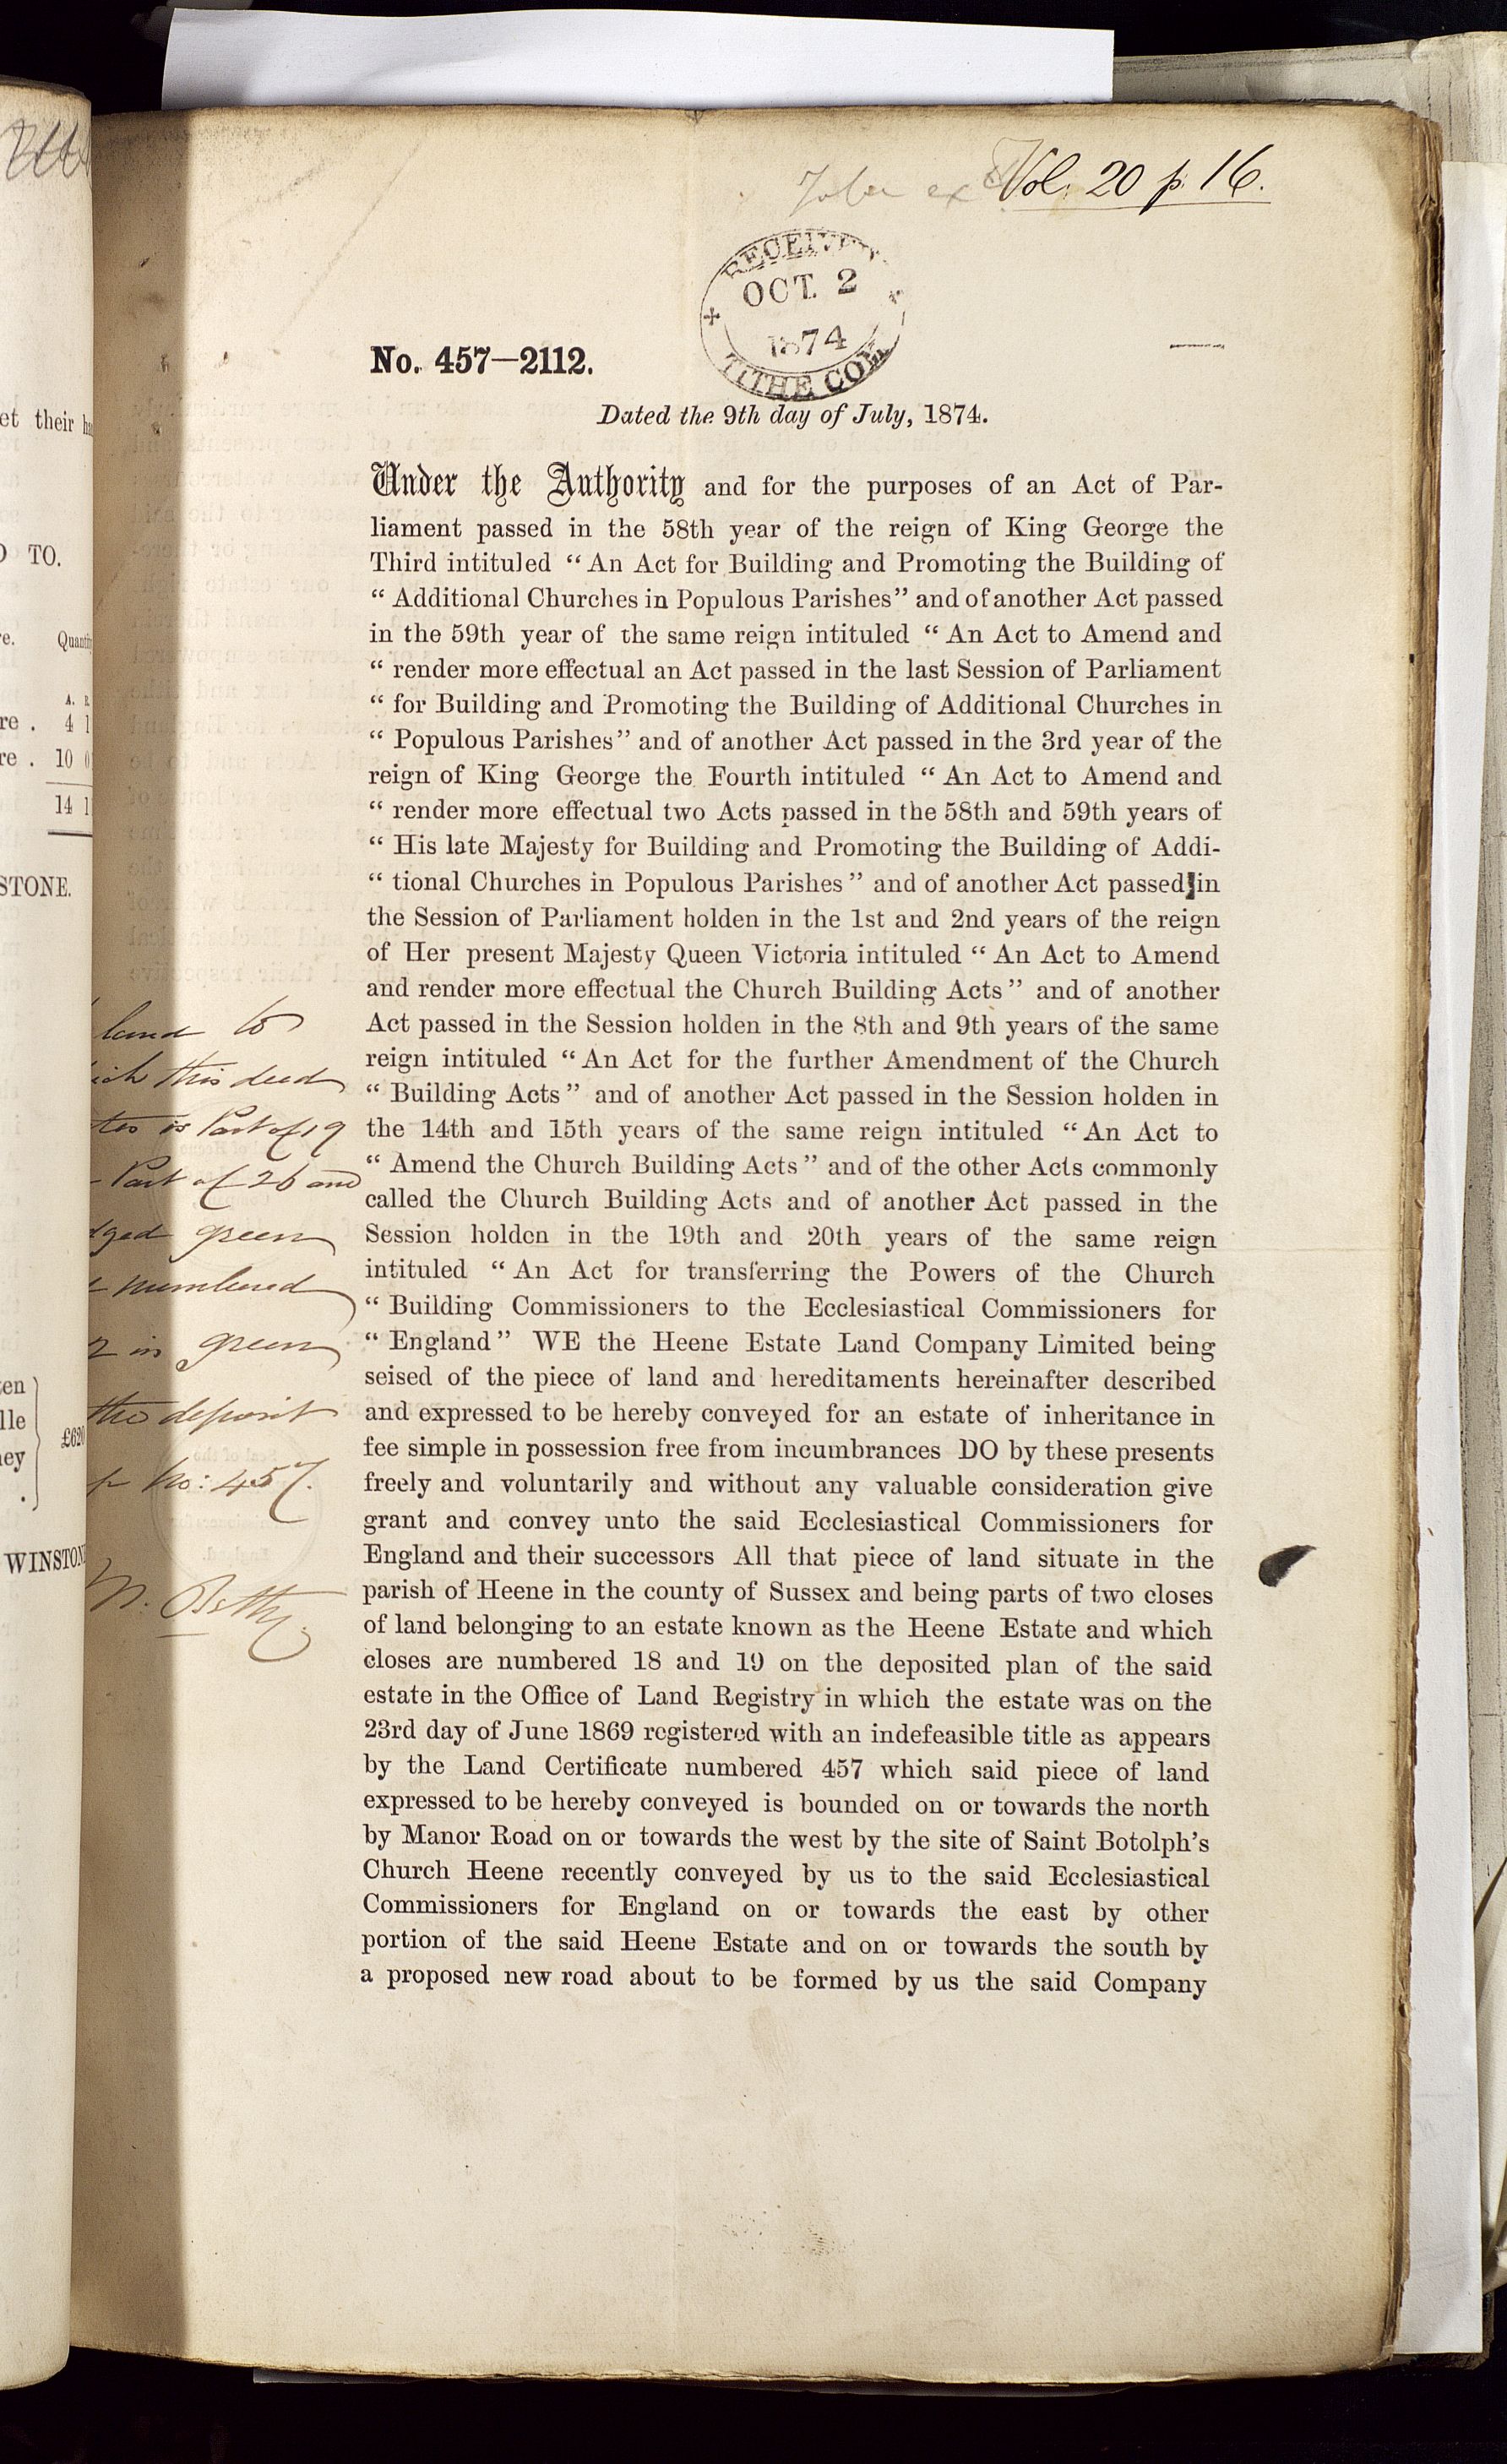 Vol. 20 p. 16.
RECEIVED
OCT. 2
1874
TITHE COM
No. 457—2112.
Dated the 9th day of July, 1874.
Under the Authority and for the purposes of an Act of Par-
liament passed in the 58th year of the reign of King George the
Third intituled “ An Act for Building and Promoting the Building of
“ Additional Churches in Populous Parishes” and of another Act passed
in the 59th year of the same reign intituled “ An Act to Amend and
“ render more effectual an Act passed in the last Session of Parliament
“ for Building and Promoting the Building of Additional Churches in
“ Populous Parishes” and of another Act passed in the 3rd year of the
reign of King George the Fourth intituled “ An Act to Amend and
“ render more effectual two Acts passed in the 58th and 59th years of
“ His late Majesty for Building and Promoting the Building of Addi-
“ tional Churches in Populous Parishes ” and of another Act passed in
the Session of Parliament holden in the 1st and 2nd years of the reign
of Her present Majesty Queen Victoria intituled “ An Act to Amend
and render more effectual the Church Building Acts ” and of another
Act passed in the Session holden in the 8th and 9th years of the same
reign intituled “ An Act for the further Amendment of the Church
“ Building Acts ” and of another Act passed in the Session holden in
the 14th and 15th years of the same reign intituled “ An Act to
“ Amend the Church Building Acts ” and of the other Acts commonly
called the Church Building Acts and of another Act passed in the
Session holden in the 19th and 20th years of the same reign
intituled “ An Act for transferring the Powers of the Church
“ Building Commissioners to the Ecclesiastical Commissioners for
“ England ” WE the Heene Estate Land Company Limited being
seised of the piece of land and hereditaments hereinafter described
and expressed to be hereby conveyed for an estate of inheritance in
fee simple in possession free from incumbrances DO by these presents
freely and voluntarily and without any valuable consideration give
grant and convey unto the said Ecclesiastical Commissioners for
England and their successors All that piece of land situate in the
parish of Heene in the county of Sussex and being parts of two closes
of land belonging to an estate known as the Heene Estate and which
closes are numbered 18 and 19 on the deposited plan of the said
estate in the Office of Land Registry in which the estate was on the
23rd day of June 1869 registered with an indefeasible title as appears
by the Land Certificate numbered 457 which said piece of land
expressed to be hereby conveyed is bounded on or towards the north
by Manor Road on or towards the west by the site of Saint Botolph’s
Church Heene recently conveyed by us to the said Ecclesiastical
Commissioners for England on or towards the east by other
portion of the said Heene Estate and on or towards the south by
a proposed new road about to be formed by us the said Company
land to
this deed
is Part of 19
Part of 26 and
green
numbered
in green
the deposit
No: 457.
et their
TO.
A.
re . 4 1
re . 10 0
14 1
STONE.
£620
WINSTON